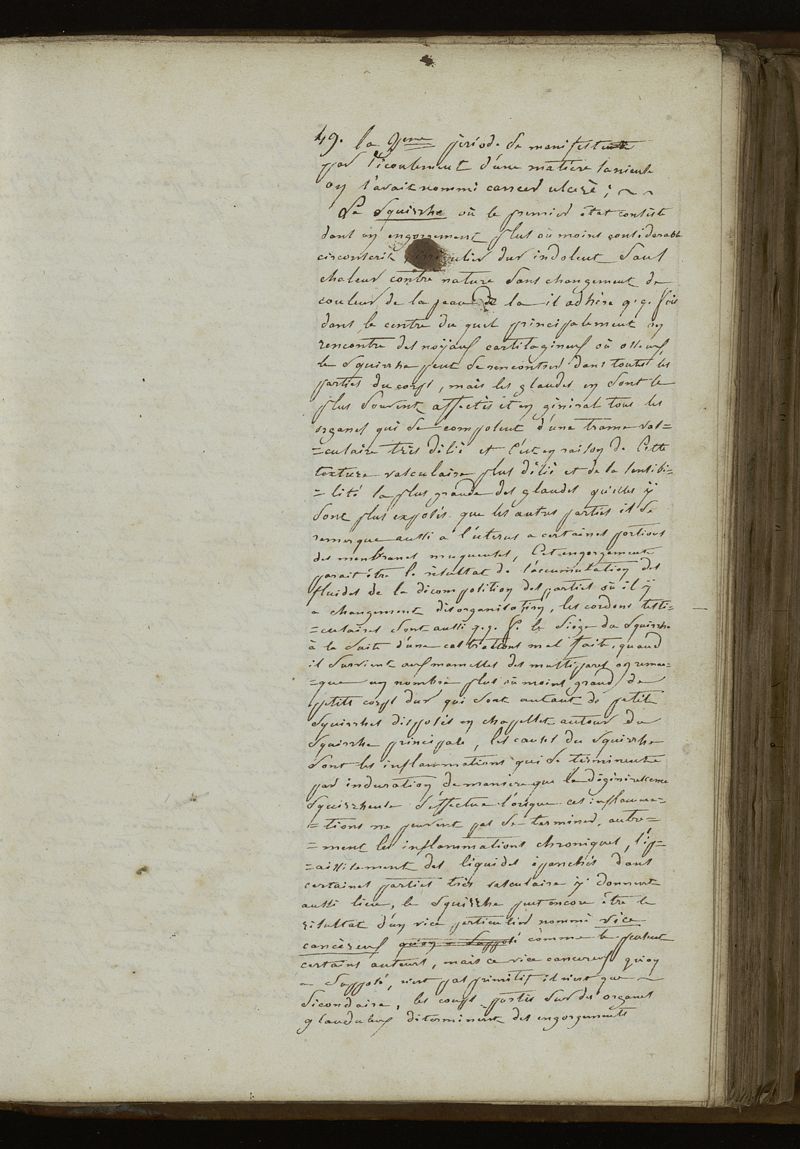 49. la 2eme période se manifeste
par l'écoulement d'une matiere sanieuse
on l'avait nommé cancer ulceré; ~ ~
Le Squirrhe où le premier état consiste
dans un engorgement plus où moins considerable
circonscrit irrégulier dur indolent sans
chaleur contre nature sans changement de
couleur de la peau de la il adhère q.q. fois
dans le centre du quel principalement on
rencontre des noÿaux cartilagineux où osseux,
le squirrhe peut se rencontrer dans toutes les
parties du corps, mais les glandes en sont le
plus souvent affectés et en général tous les
organes qui se composent d'une trame vas=
=culaire très délié et c'est en raison de cette
texture vasculaire plus délié et de la sensibi=
=lité la plus grande des glandes qu'elles ÿ
sont plus exposés que les autres parties il se
remarque aussi a l'uterus a certaines portions
des menbranes muqueuses, Cet engorgement
parait être le résultat de l'accumulation des
fluides de la décomposition des parties où il ÿ
a changement d'ésorganisation, les cordons testi=
=culaires sont aussi q.q. f. le siège du squirrhe
à la suite d'une castrations mal faite, quand
il survient aux mamelles des multipares on remar=
=que un nombre plus où moins grand de
petits corps dur qui sont autant de petit
squirrhes disposés en chapellet autour du
squirrhe principale, les causes du squirrhe
sont les inflammations qui se terminent
par induration de maniere que la dégénérescence
squirrheuse s'effectue lorsque ces inflamma=
=tions ne peuvent pas se terminer, autre=
=ment les inflammations chroniques, l'ép=
=aississement des liquides épanchés dans
certaines parties très vasculaire ÿ donnent
aussi lieu, le squirrhe peut encore être le
résultat d'un vice particulier nommé vice
cancéreux qu'on a supposé comme le pensent
certains auteurs, mais ce vice cancereux qu'on
a supposé, n'est pas primitif il n'est que ~
secondaire, les coups portés sur des organes
glanduleux déterminent des engorgements